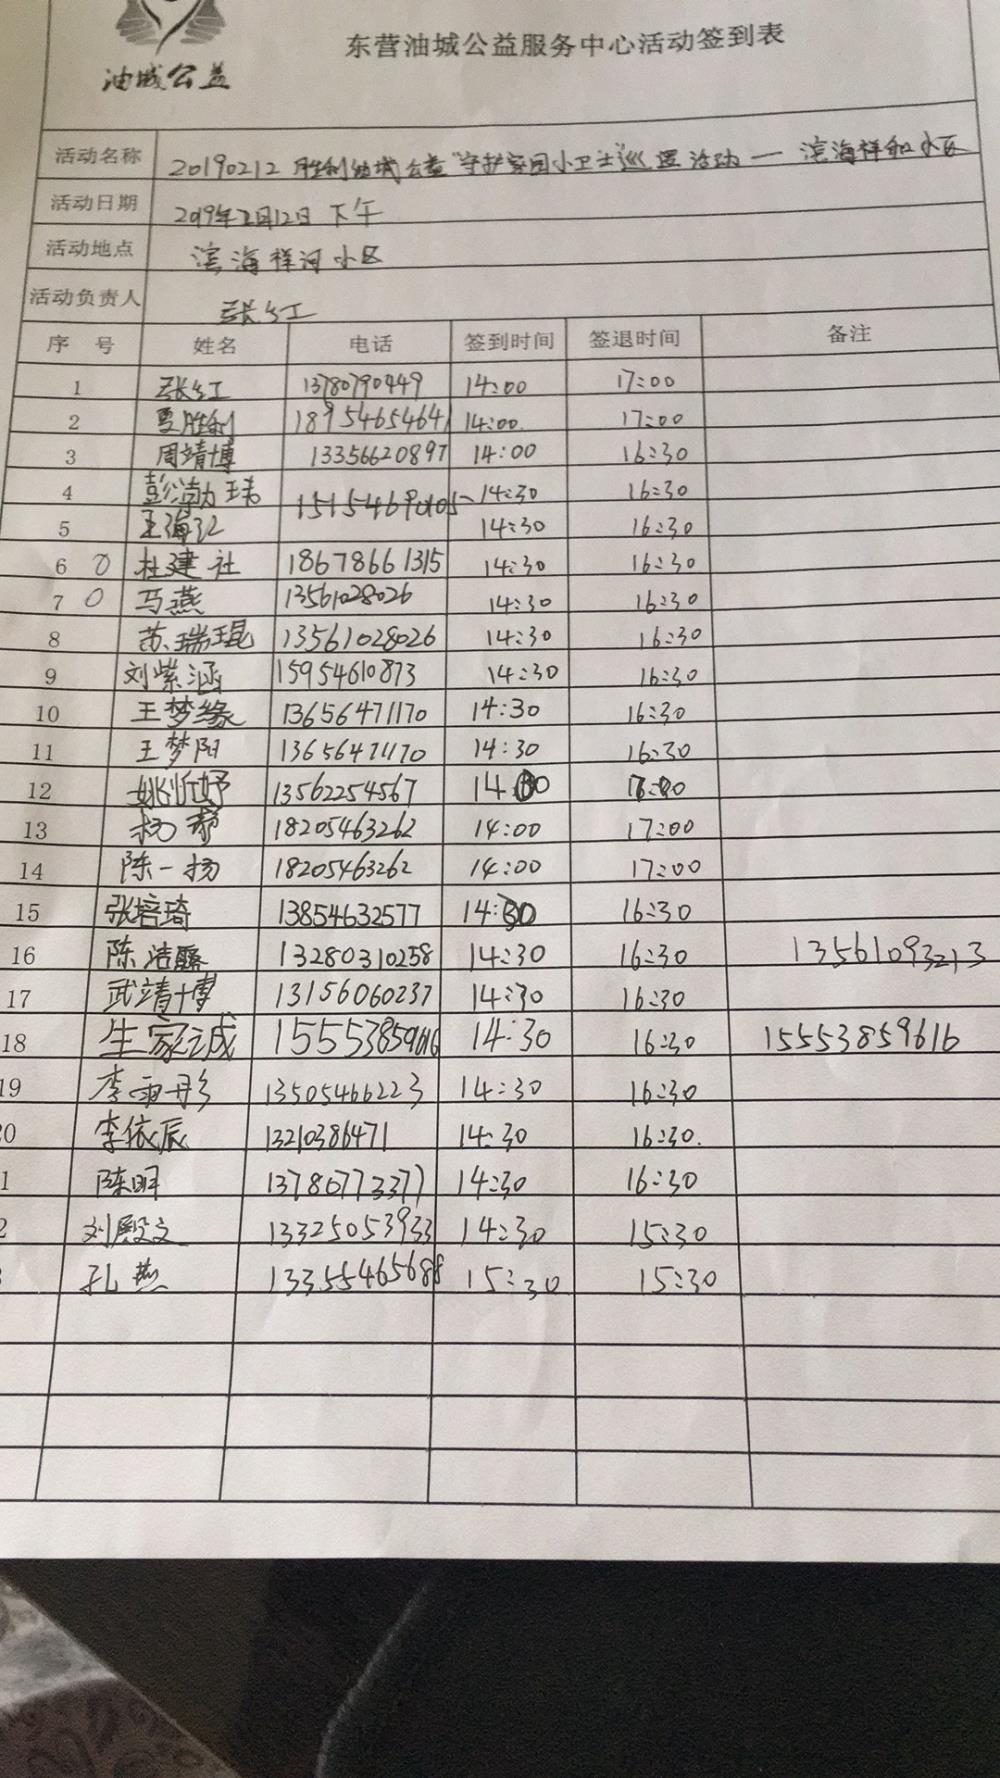 油城公益
东营油城公益服务中心活动签到表
活动名称 20190212 胜利油城公益"守护家园小卫士"巡逻活动一 滨海祥和小区
活动日期 2019年2月12日 下午
活动地点 滨海祥河小区
活动负责人 张红
序 号 姓名 电话 签到时间 签退时间 备注
1 张红 13780790449 14:00 17:00
2 胜利 18954654641 14:00 17:00
3 周靖博 13356620897 14:00 16:30
4 彭渤玮 14:30 16:30
5 王海江 14:30 16:30
6 0 杜建社 18678661315 14:30 16:30
7 0 马燕 13561028026 14:30 16:30
8 苏瑞琨 13561028026 14:30 16:30
9 刘紫涵 15954610873 14:30 16:30
10 王梦缘 13656471170 14:30 16:30
11 王梦阳 13656471170 14:30 16:30
12 姚 妤 13562254567
13 杨 18205463262 14:00 17:00
14 陈一扬 18205463262 14:00 17:00
15 张培琦 13854632577 14:30 16:30
16 陈洁 13280310258 14:30 16:30 13561093213
17 武靖博 13156060237 14:30 16:30
18 生家诚 15553859616 14:30 16:30 15553859616
19 李雨彤 13505466223 14:30 16:30
0 李依辰 13210386471 14:30 16:30.
1 陈明 13780773377 14:30 16:30
2 刘殿文 13325053933 14:30 15:30
孔燕 13355465688 15:30 15:30